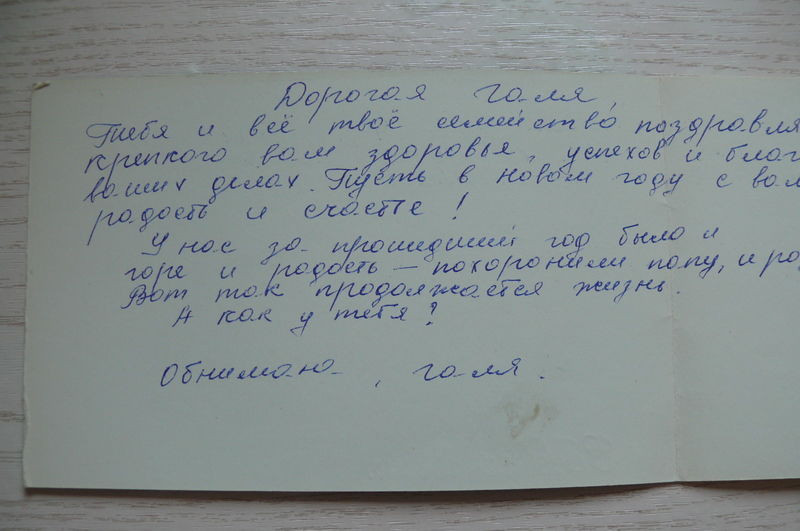 Дорогая Галя,
Тебя и всё твоё семейство поздравля
крепкого вам здоровья, успехов и благ
ваших делах. Пусть в новом году с вам
радость и счастье!
У нас за прошедший год было и
горе и радость — похоронили папу, и ро
Вот так продолжается жизнь.
А как у тебя?
Обнимаю, Галя.